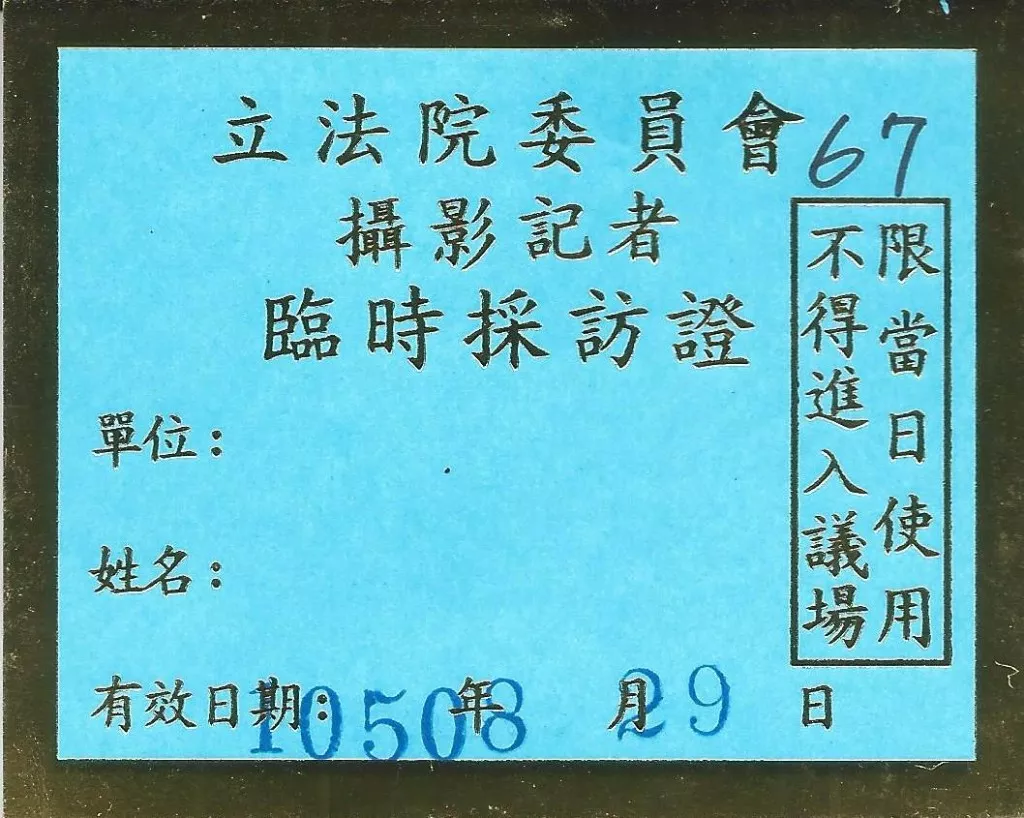 立法院委員會
67
攝影記者
臨時採訪證
限當日使用
不得進入議場
單位：
姓名：
有效日期：10508年 月29日